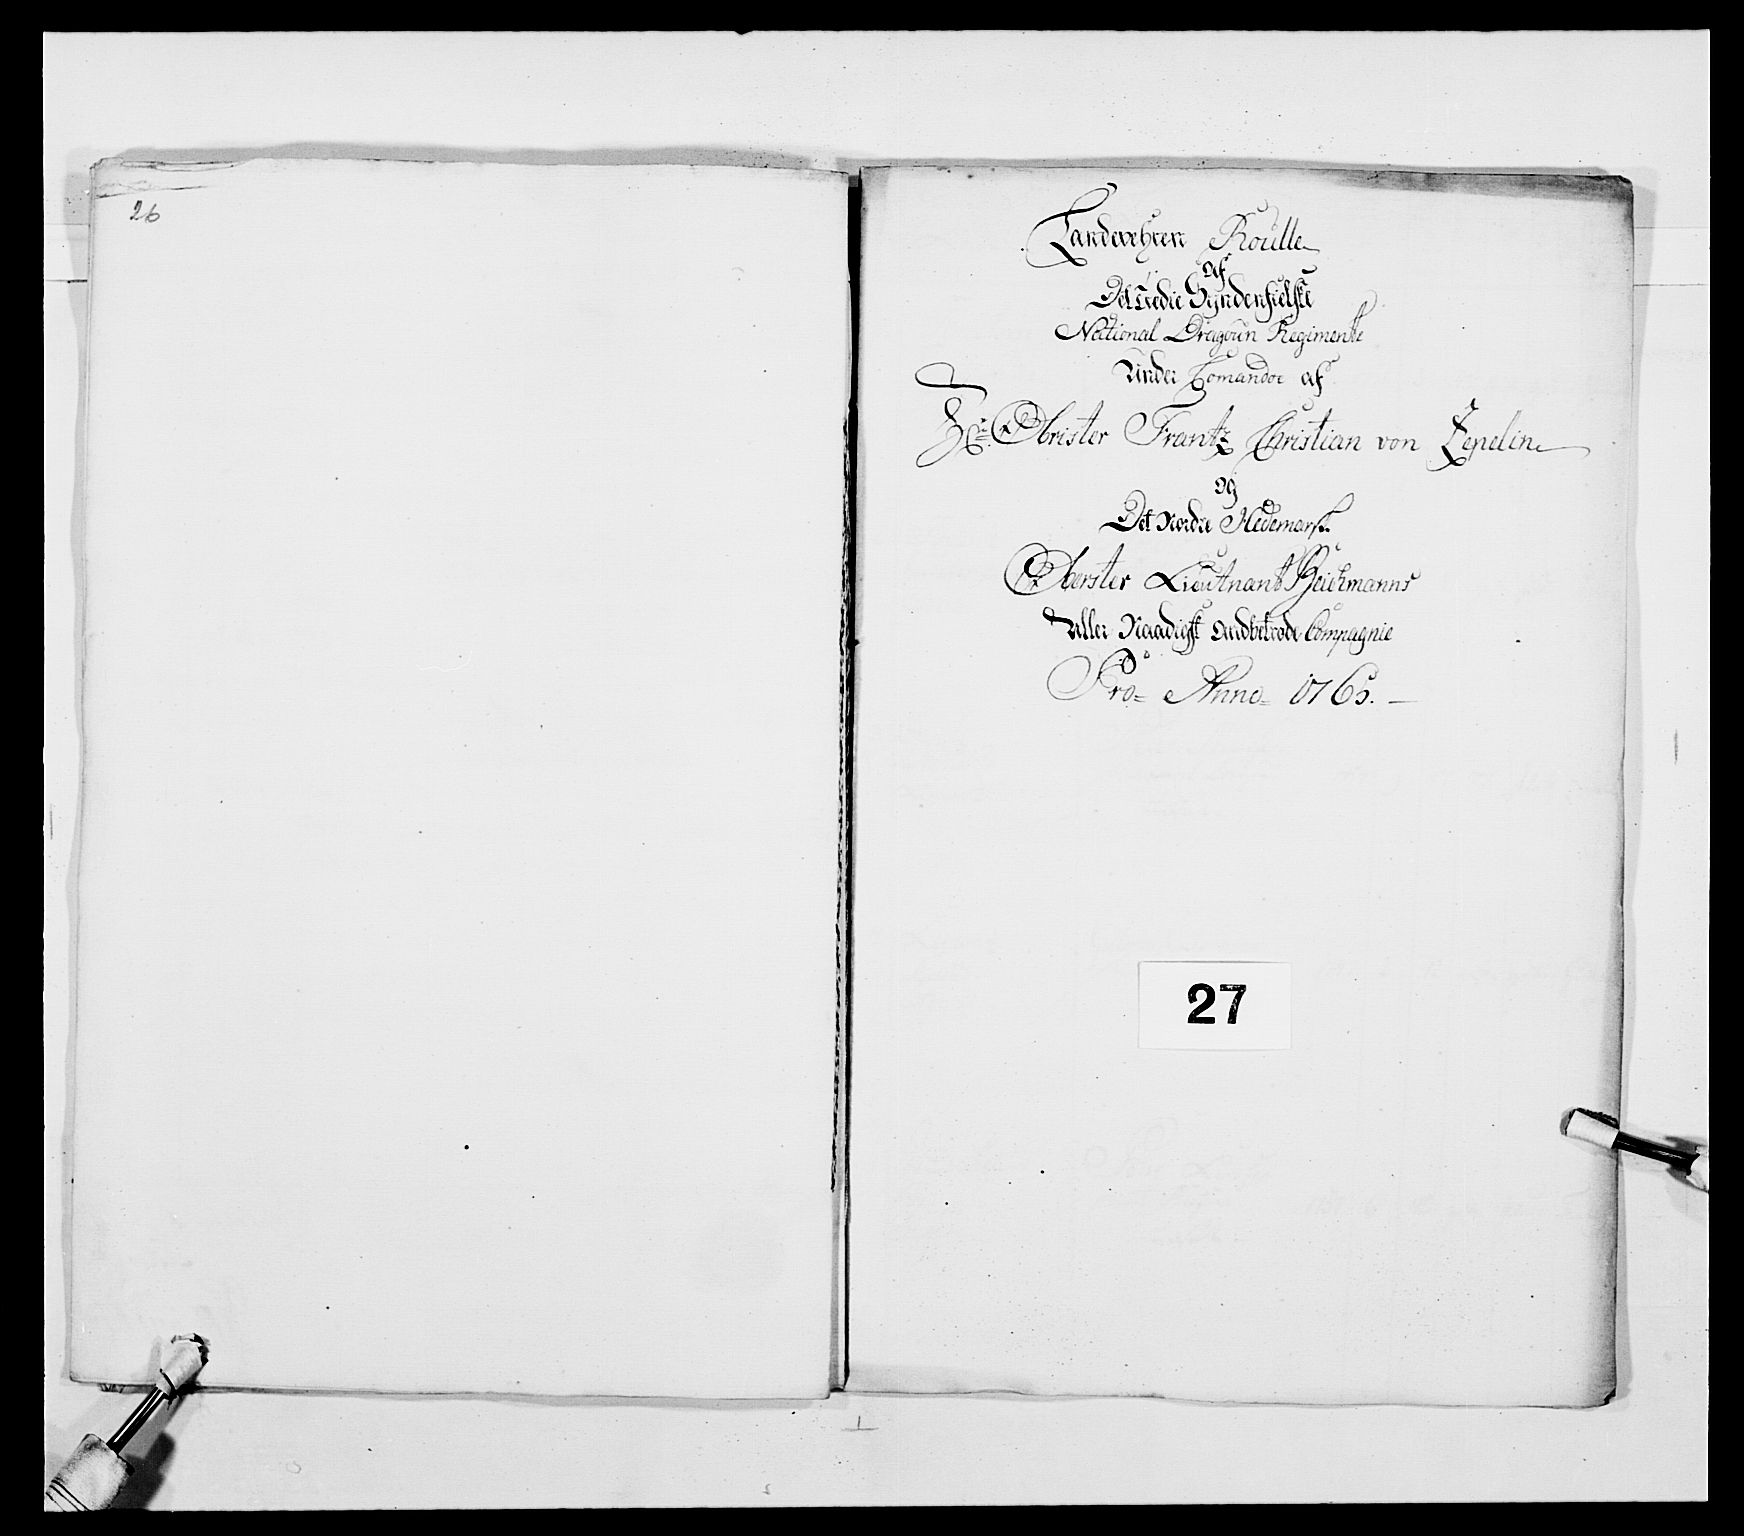 26
Landevehren Roulle
af
Det Tredie Syndenfielske
National Dragoun Regimente
Under Comandoe af
Hr. Obrister Frantz Christian von Zepelin
og
Det Nordre Hedemarkske
Oberster Lieutnant Beichmanns
Aller Naadigst andbetrode Compagnie
Pro= Anno= 1765.
27